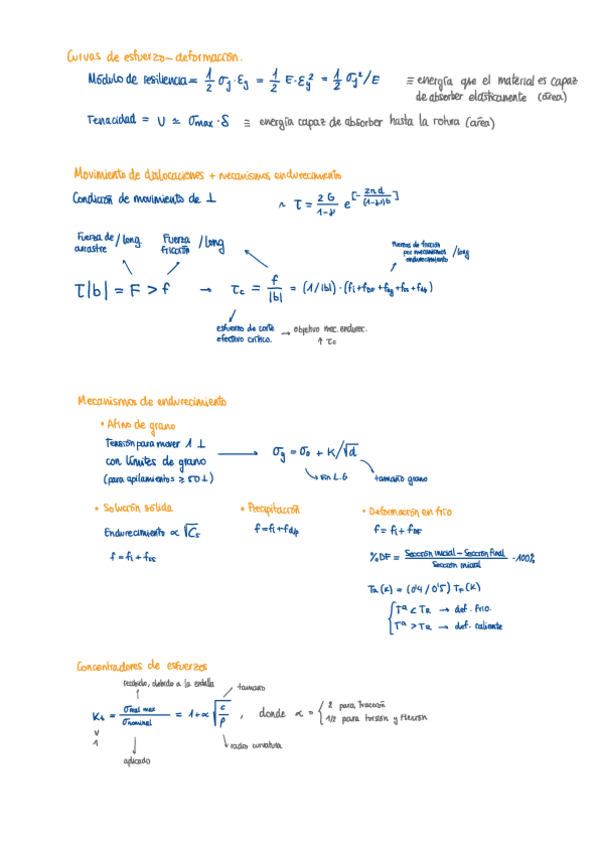 Curvas de esfuerzo-deformación.
Módulo de resiliencia = 1/2 σy·εy = 1/2 E·εy² = 1/2 σy²/E ≡ energía que el material es capaz
de absorber elásticamente (área)
Tenacidad = U ≃ σmax·δ ≡ energía capaz de absorber hasta la rotura (área)
Movimiento de dislocaciones + mecanismos endurecimiento
Condición de movimiento de ⊥ ~ τ = 2G/(1-ν) e^[-2πd/((1-ν)b)]
Fuerza de arrastre /long
Fuerza fricción /long
Fuerzas de fricción por mecanismos endurecimiento /long
τ|b| = F > f → τc = f/|b| = (1/|b|)·(fi+fDF+fzg+fss+fdp)
esfuerzo de corte → objetivo mec. endurec.
efectivo crítico. ↑ τc
Mecanismos de endurecimiento
• Afino de grano
Tensión para mover 1 ⊥
con límites de grano → σy = σo + K/√d
(para apilamientos ≥ 50 ⊥) sin L.G tamaño grano
• Solución sólida
Endurecimiento ∝ √Cs
f = fi + fss
• Precipitación
f = fi + fdp
• Deformación en frío
f = fi + fDF
%DF = (Sección inicial - Sección final)/Sección inicial · 100%
TR(K) = (0'4/0'5) TF(K)
{Tª < TR → def. frío.
Tª > TR → def. caliente
Concentradores de esfuerzos
recibido, debido a la entalla
tamaño
Kt = σreal max/σnominal = 1+α √(c/ρ), donde α = {2 para tracción
1/2 para torsión y flexión
V
1
radio curvatura
aplicado